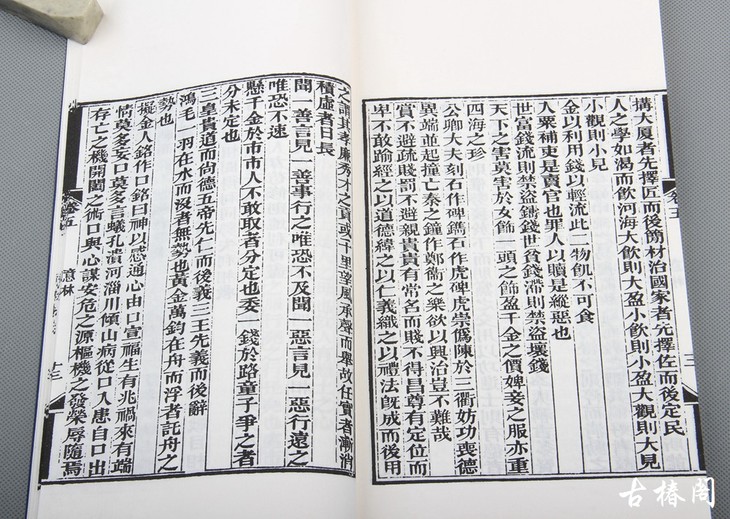 搆大厦者先擇匠而後簡材治國家者先擇佐而後定民
人之學如渴而飲河海大飲則大盈小飲則小盈大觀則大見
小觀則小見
金以利用錢以輕流此二物飢不可食
人粟補吏是賣官也罪人以贖是縱惡也
世富錢流則禁盜鑄錢世貧錢滯則禁盜壞錢
天下之害莫害於女飾一頭之飾盈千金之價婢妾之服亦重
四海之珍
公卿大夫刻石作碑鐫石作虎碑虎崇僞陳於三衢妨功喪德
異端並起撞亡秦之鐘作鄭衞之樂欲以興治豈不難哉
賞不避疏賤罰不避親貴貴有常名而賤不得冒尊有定位而
卑不敢踰經之以道德緯之以仁義織之以禮法既成而後用
卷五
三
之謂其孝廉秀才之貢或千里望風承聲而舉故任實者漸消
積虛者日長
聞一善言見一善事行之唯恐不及聞一惡言見一惡行遠之
唯恐不速
懸千金於市市人不敢取者分定也委一錢於路童子爭之者
分未定也
三皇貴道而尚德五帝先仁而後義三王先義而後辭
鴻毛一羽在水而沒者無勢也黃金萬鈞在舟而浮者託舟之
勢也
擬金人銘作口銘曰神以感通心由口宣福生有兆禍來有端
情莫多妄口莫多言蟻孔潰河淄川傾山病從口入患自口出
存亡之機開闔之術口與心謀安危之源樞機之發榮辱隨焉
意林
卷五
十三
古椿閣